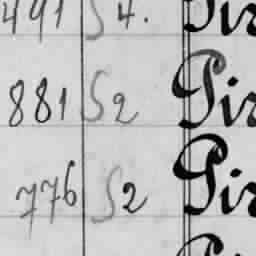 491 S 4. Pir
881 S 2 Pir
776 S 2 Pir